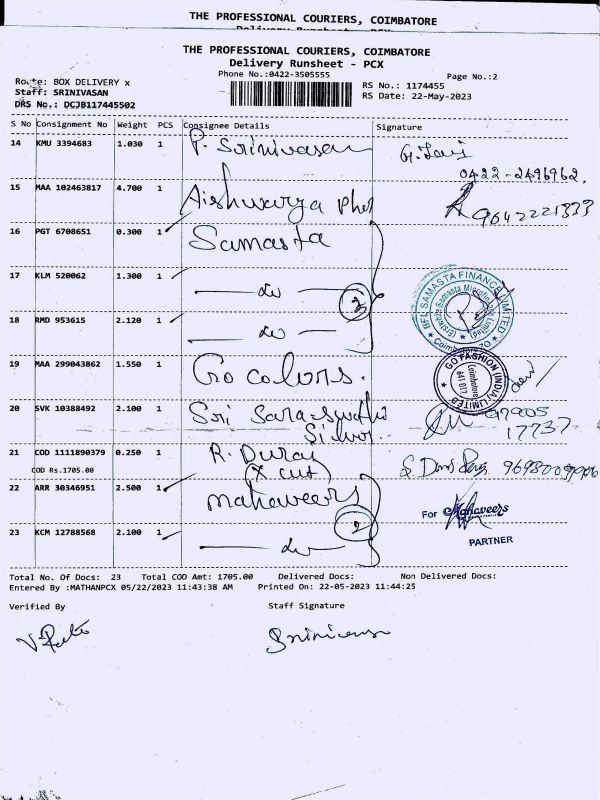 THE PROFESSIONAL COURIERS, COIMBATORE
Delivery Runsheet - PCX
THE PROFESSIONAL COURIERS, COIMBATORE
Delivery Runsheet - PCX
Phone No.:0422-3505555
Page No.:2
Route: BOX DELIVERY x
Staff: SRINIVASAN
DRS No.: DCJB117445502
RS No.: 1174455
RS Date: 22-May-2023
S No Consignment No Weight PCS Consignee Details Signature
14 KMU 3394683 1.030 1 P. Srinivasan
0422-2496962.
15 MAA 102463817 4.700 1 Aishwarya
9642221333
16 PGT 6708651 0.300 1 Samasta
17 KLM 520062 1.300 1 — do —
3
18 RMD 953615 2.120 1 — do —
IIFL SAMASTA FINANCE LIMITED
(Erstwhile Samasta Microfinance Limited)
19 MAA 299043862 1.550 1 Go colors.
GO FASHION (INDIA) LIMITED
Coimbatore
20 SVK 10388492 2.100 1 Sri Saraswathi
17737
21 COD 1111890379 0.250 1 R. Durai
COD Rs.1705.00
22 ARR 30346951 2.500 1 Mahaveers
2
For Mahaveers
PARTNER
23 KCM 12788568 2.100 1 — do —
Total No. Of Docs: 23 Total COD Amt: 1705.00 Delivered Docs: Non Delivered Docs:
Entered By :MATHANPCX 05/22/2023 11:43:38 AM Printed On: 22-05-2023 11:44:25
Verified By Staff Signature
Srinivasan